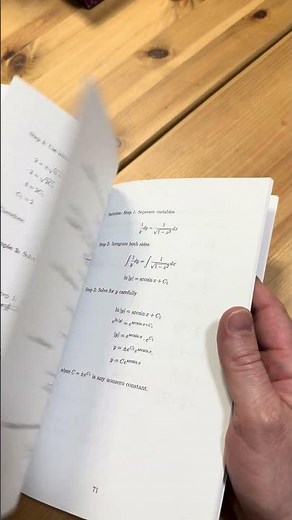 Solution: Step 1: Separate variables
1/y dy = 1/√(1 − x²) dx
Step 2: Integrate both sides
∫ 1/y dy = ∫ 1/√(1 − x²) dx
ln |y| = arcsin x + C₁
Step 3: Solve for y carefully
ln |y| = arcsin x + C₁
e^(ln |y|) = e^(arcsin x + C₁)
|y| = e^(arcsin x) · e^(C₁)
y = ±e^(C₁) e^(arcsin x)
y = C e^(arcsin x)
where C = ±e^(C₁) is any nonzero constant.
71